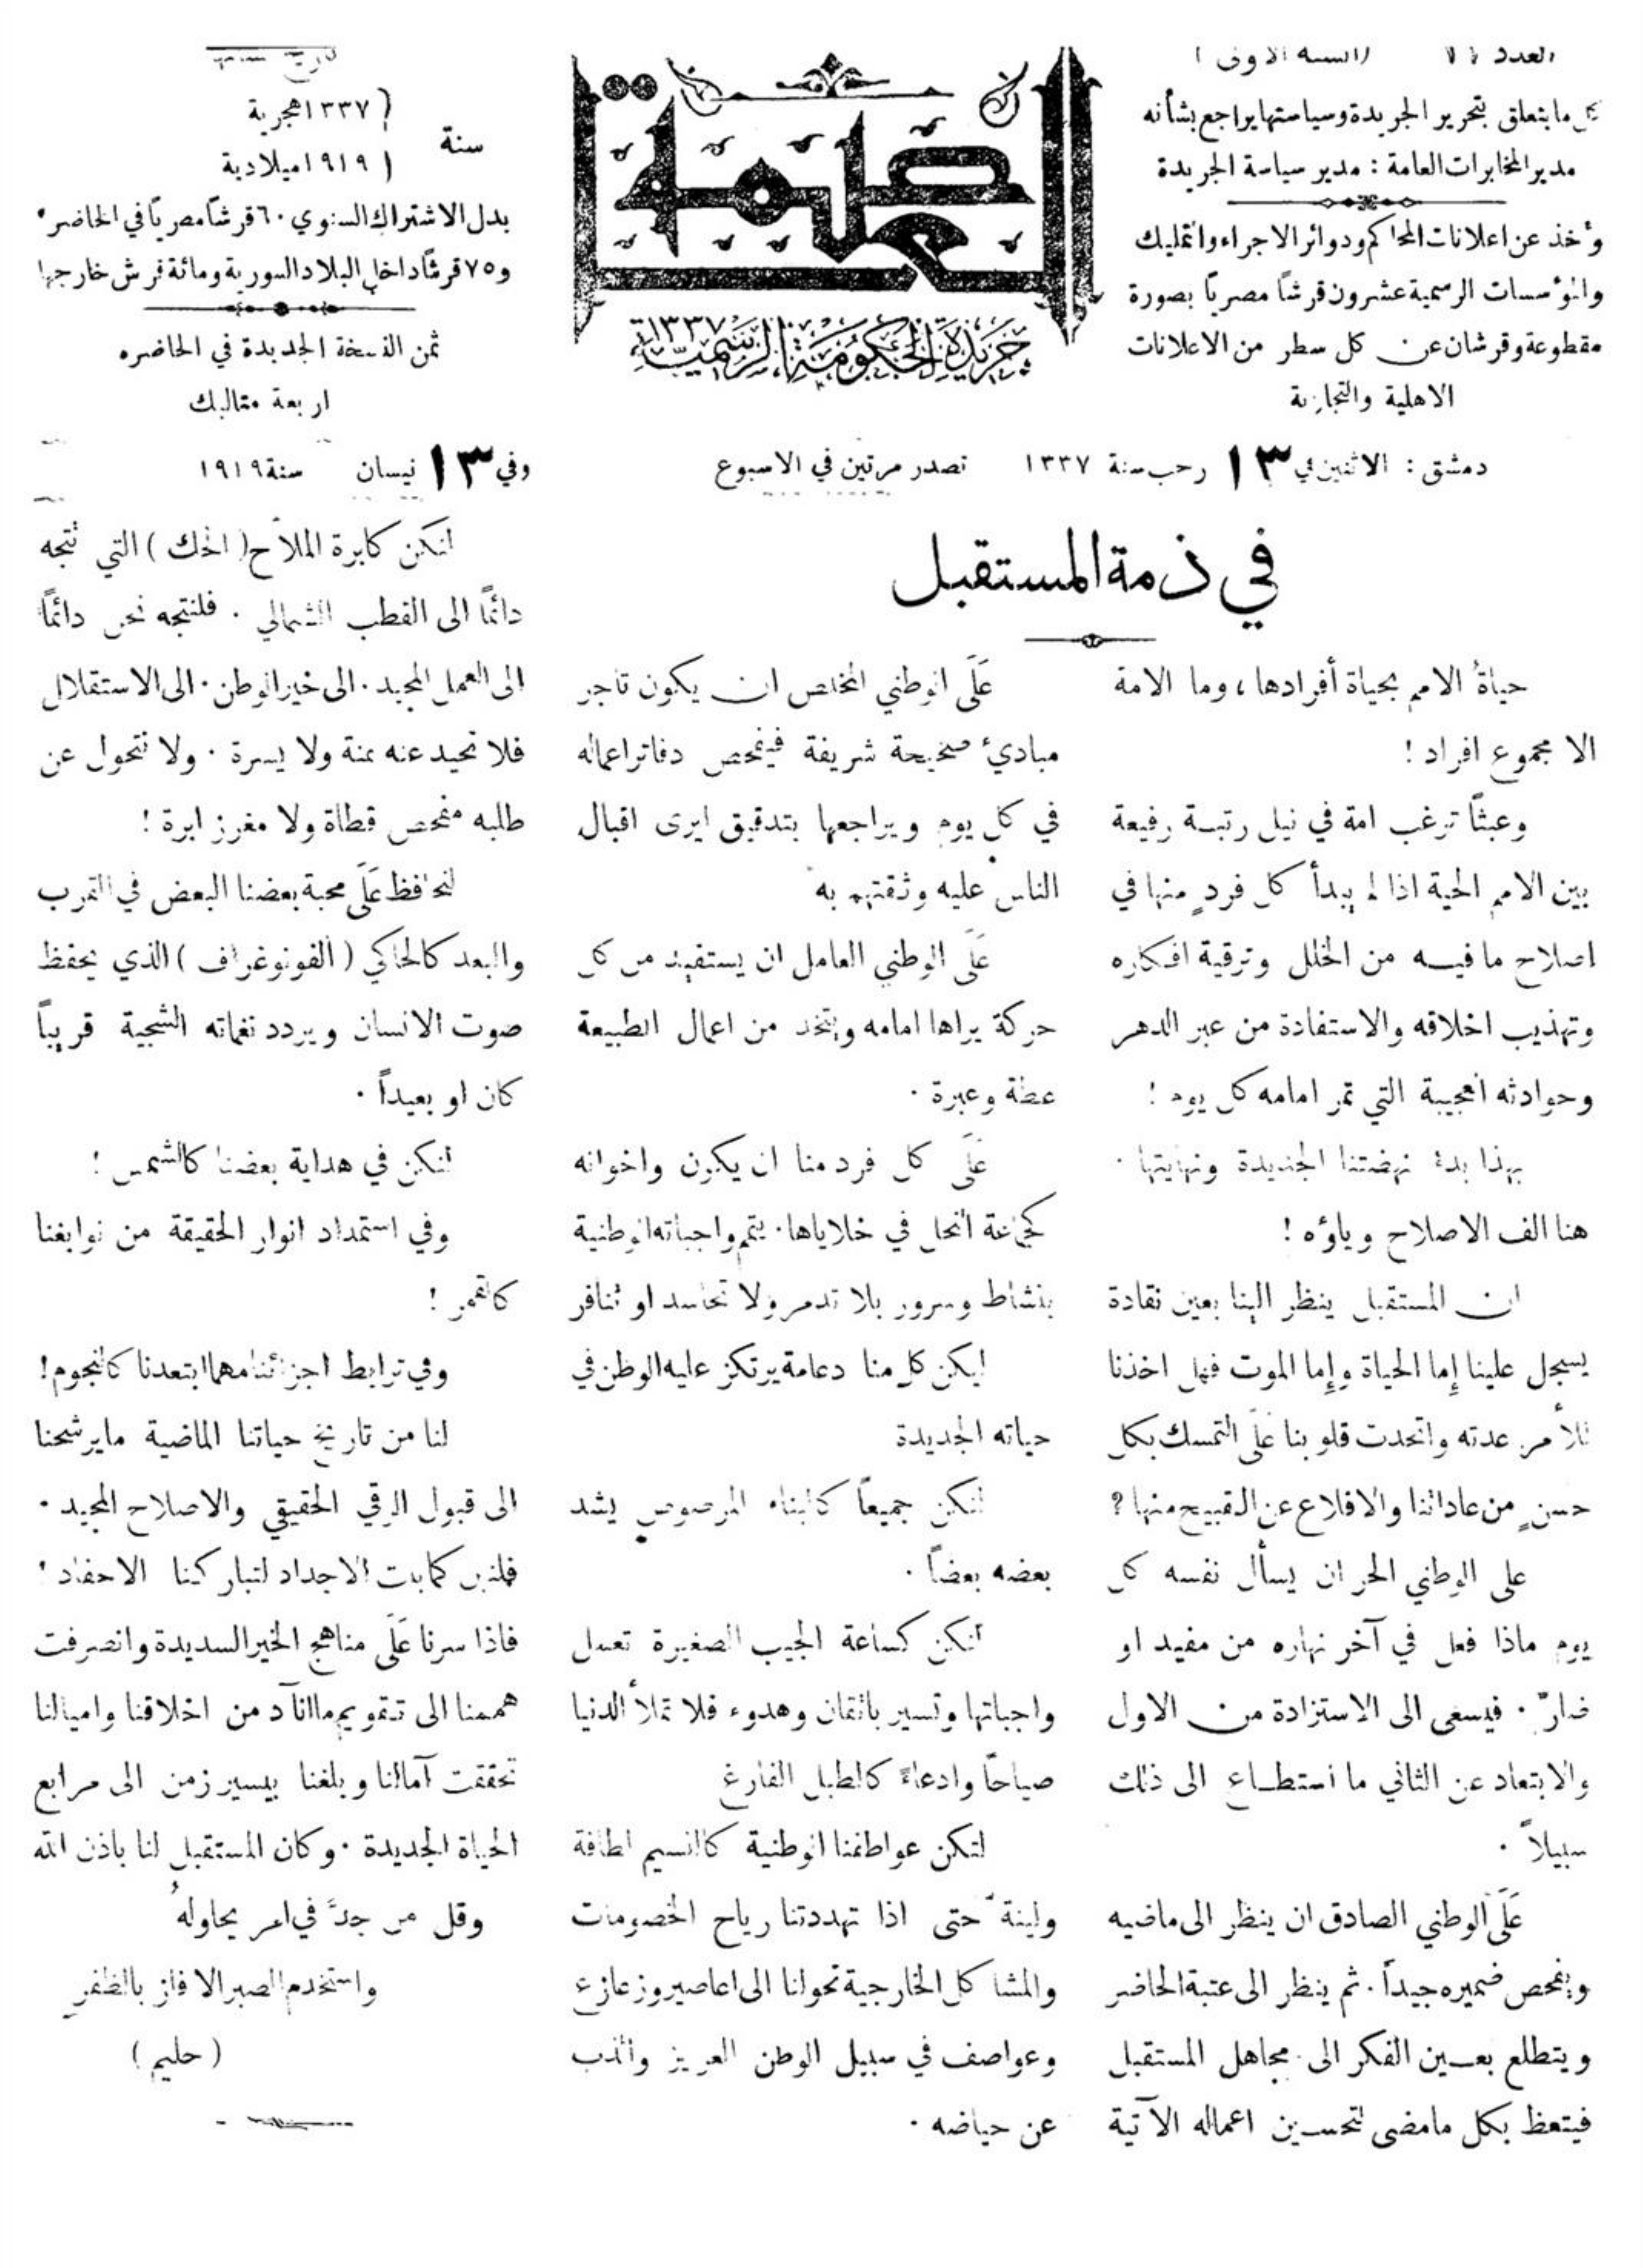 العدد (السنة الاولى)
ما يتعلق بتحرير الجريدة وسياستها يراجع بشأنه
مدير المخابرات العامة : مدير سياسة الجريدة
وأخذ عن اعلانات المحاكم ودوائر الاجراء والتمليك
والمؤسسات الرسمية عشرون قرشاً مصرياً بصورة
مقطوعة وقرشان عن كل سطر من الاعلانات
الاهلية والتجارية
العاصمة
جريدة الحكومة الرسمية ١٣٣٧
سنة
١٣٣٧ هجرية
١٩١٩ ميلادية
بدل الاشتراك السنوي ٦٠ قرشاً مصرياً في الحاضرة
و ٧٥ قرشاً داخل البلاد السورية ومائة قرش خارجها
ثمن النسخة الجديدة في الحاضره
اربعة متاليك
دمشق : الاثنين في ١٣ رجب سنة ١٣٣٧ تصدر مرتين في الاسبوع وفي ١٣ نيسان سنة ١٩١٩
في ذمة المستقبل
حياةُ الامم بحياة أفرادها ، وما الامة
الا مجموع افراد !
وعبثاً ترغب امة في نيل رتبة رفيعة
بين الامم الحية اذا لم يبدأ كل فردٍ منها في
اصلاح ما فيه من الخلل وترقية افكاره
وتهذيب اخلاقه والاستفادة من عبر الدهر
وحوادثه العجيبة التي تمر امامه كل يوم !
بهذا بدء نهضتنا الجديدة ونهايتها .
هنا الف الاصلاح وياؤه !
ان المستقبل ينظر الينا بعين نقادة
يسجل علينا إما الحياة وإما الموت فهل اخذنا
للأمر عدته واتحدت قلوبنا عَلَى التمسك بكل
حسنٍ من عاداتنا والاقلاع عن القبيح منها ؟
على الوطني الحر ان يسأل نفسه كل
يوم ماذا فعل في آخر نهاره من مفيد او
ضارّ . فيسعى الى الاستزادة من الاول
والابتعاد عن الثاني ما استطاع الى ذلك
سبيلاً .
عَلَى الوطني الصادق ان ينظر الى ماضيه
ويفحص ضميره جيداً . ثم ينظر الى عتبة الحاضر
ويتطلع بعين الفكر الى مجاهل المستقبل
فيتعظ بكل ما مضى لتحسين اعماله الآتية
عَلَى الوطني المخلص ان يكون تاجر
مبادئ صحيحة شريفة فيفحص دفاتر اعماله
في كل يوم ويراجعها بتدقيق ليرى اقبال
الناس عليه وثقتهم به
عَلَى الوطني العامل ان يستفيد من كل
حركة يراها امامه ويتخذ من اعمال الطبيعة
عظة وعبرة .
عَلَى كل فرد منا ان يكون واخوانه
كجماعة النحل في خلاياها . يتم واجباته الوطنية
بنشاط وسرور بلا تذمر ولا تحاسد او تنافر
ليكن كل منا دعامة يرتكز عليه الوطن في
حياته الجديدة
لنكن جميعاً كالبناء المرصوص يشد
بعضه بعضاً .
لنكن كساعة الجيب الصغيرة تعمل
واجباتها وتسير باتقان وهدوء فلا تملأ الدنيا
صياحاً وادعاءً كالطبل الفارغ
لتكن عواطفنا الوطنية كالنسيم لطافة
ولينة حتى اذا تهددتنا رياح الخصومات
والمشاكل الخارجية تحولنا الى اعاصير وزعازع
وعواصف في سبيل الوطن العزيز والذب
عن حياضه .
لنكن كابرة الملاح (الحك) التي تتجه
دائماً الى القطب الشمالي . فلنتجه نحن دائماً
الى العمل المجيد . الى خير الوطن . الى الاستقلال
فلا نحيد عنه يمنة ولا يسرة . ولا نتحول عن
طلبه مفحص قطاة ولا مغرز ابرة !
لنحافظ عَلَى محبة بعضنا البعض في القرب
والبعد كالحاكي (الفونوغراف) الذي يحفظ
صوت الانسان ويردد نغماته الشجية قريباً
كان او بعيداً .
لنكن في هداية بعضنا كالشمس !
وفي استمداد انوار الحقيقة من نوابغنا
كالقمر !
وفي ترابط اجزائنا مهما ابتعدنا كالنجوم !
لنا من تاريخ حياتنا الماضية ما يرشحنا
الى قبول الرقي الحقيقي والاصلاح المجيد .
فلنبن كما بنت الاجداد لتباركنا الاحفاد !
فاذا سرنا عَلَى مناهج الخير السديدة وانصرفت
هممنا الى تقويم ما انآد من اخلاقنا واميالنا
تحققت آمالنا وبلغنا بيسير زمن الى مرابع
الحياة الجديدة . وكان المستقبل لنا باذن الله
وقل من جدَّ في امر يحاولهُ
واستخدم الصبر الا فاز بالظفر
(حليم)